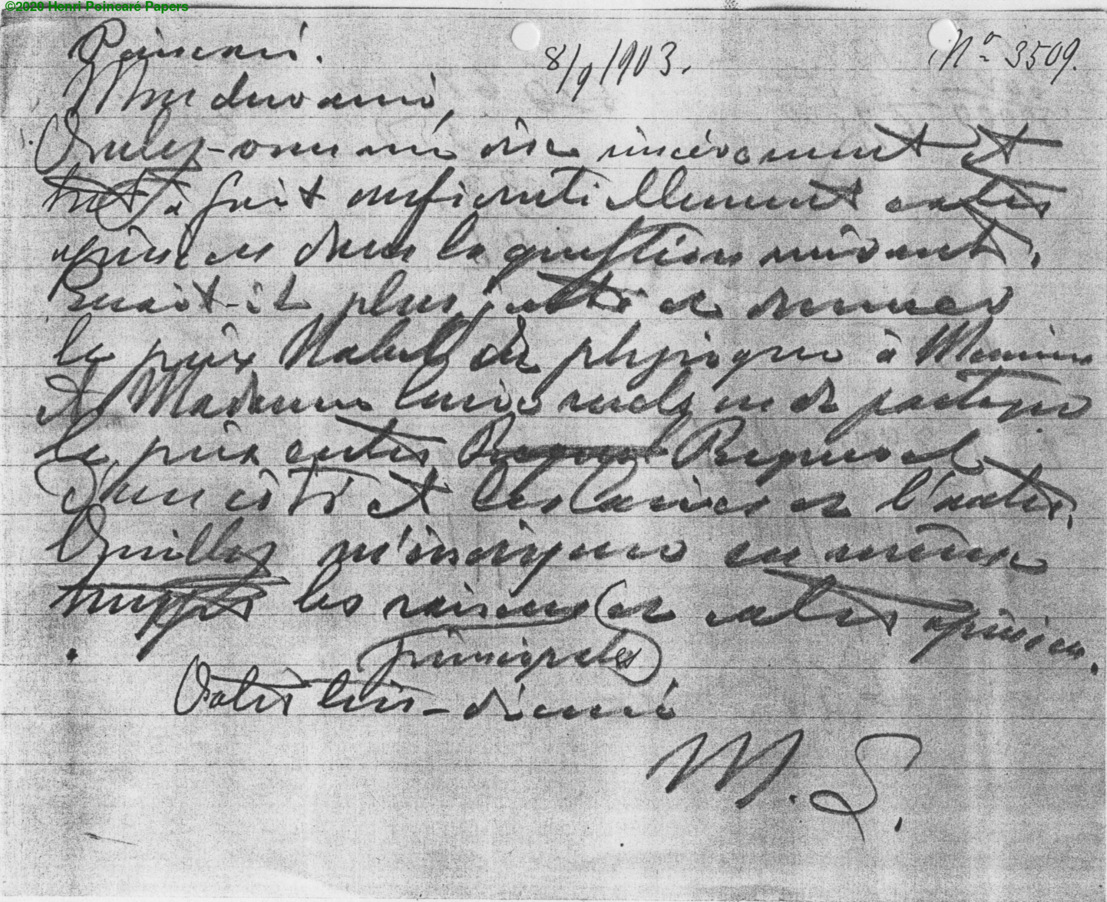 ©2020 Henri Poincaré Papers
Poincaré. 8/9/1903. No 3509.
Mon cher ami,
Voulez-vous me dire sincèrement et
tout à fait confidentiellement votre
opinion dans la question suivante.
Serait-il plus juste de donner
le prix Nobel de physique à Monsieur
et Madame Curie seuls ou de partager
le prix entre Becquerel
d'un côté et les Curies de l'autre.
Veuillez m'indiquer en même
temps les raisons de votre opinion.
principales
Votre bien-dévoué
M. L.